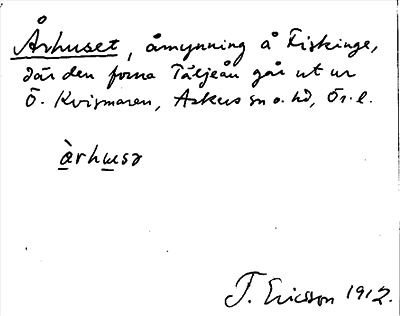 Århuset, åmynning å Fiskinge,
där den forna Täljeån går ut ur
Ö. Kvismaren, Askers sn o. hd, Ör. l.
àrhɯsə
T. Ericsson 1912.